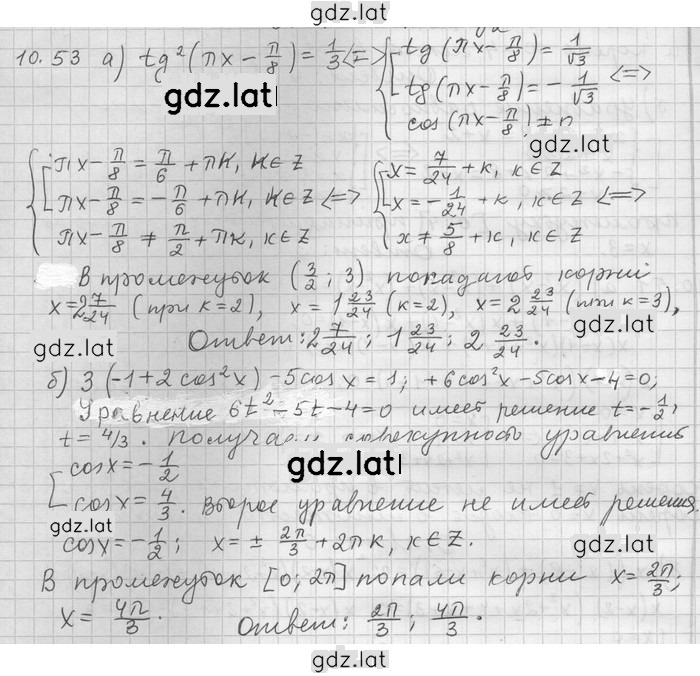 gdz.lat
10.53 а) tg²(πx − π/8) = 1/3 <=> { [ tg(πx − π/8) = 1/√3
tg(πx − π/8) = − 1/√3 <=>
cos(πx − π/8) ≠ n
gdz.lat
gdz.lat
{ [ πx − π/8 = π/6 + πK, K∈Z
πx − π/8 = − π/6 + πK, K∈Z <=>
πx − π/8 ≠ π/2 + πK, K∈Z
{ [ x = 7/24 + K, K∈Z
x = − 1/24 + K, K∈Z <=>
x ≠ 5/8 + K, K∈Z
В промежуток (3/2; 3) попадают корни
x=2 7/24 (при k=2), x = 1 23/24 (k=2), x = 2 23/24 (при k=3),
gdz.lat
gdz.lat
Ответ: 2 7/24; 1 23/24; 2 23/24.
б) 3(−1+2cos²x) −5cosx = 1; +6cos²x −5cosx −4=0;
Уравнение 6t² −5t −4=0 имеет решение t= − 1/2,
t = 4/3. Получаем совокупность уравнений
gdz.lat
[ cosx = − 1/2
cosx = 4/3. Второе уравнение не имеет решения.
gdz.lat
cosx = − 1/2; x = ± 2π/3 + 2πk, k∈Z.
gdz.lat
В промежуток [0; 2π] попали корни x = 2π/3;
x = 4π/3.
Ответ: 2π/3; 4π/3.
gdz.lat